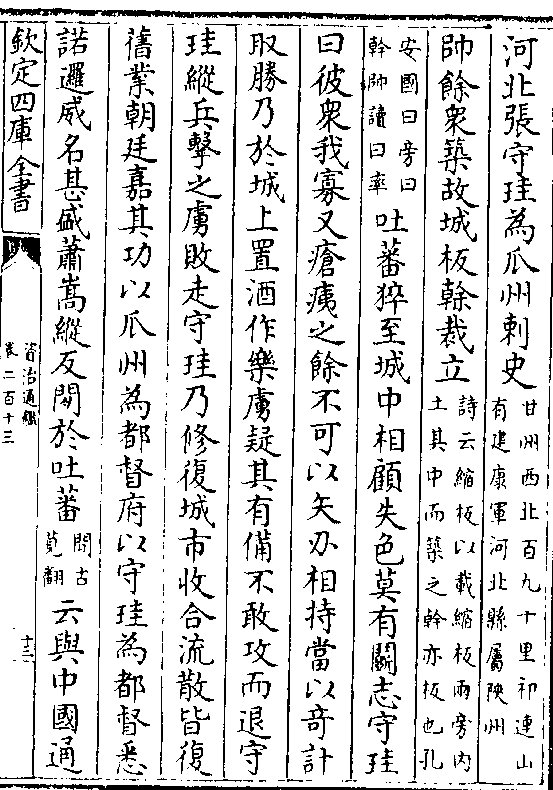 河北張守珪為瓜州刺史甘州西北百九十里祁連山有建康軍河北縣屬陜州
帥餘衆築故城板榦裁立詩云縮板以載縮板兩旁内土其中而築之榦亦板也孔
安國曰旁曰榦帥讀曰率吐蕃猝至城中相顧失色莫有鬭志守珪
曰彼衆我寡又瘡痍之餘不可以矢刃相持當以竒計
取勝乃於城上置酒作樂虜疑其有備不敢攻而退守
珪縱兵擊之虜敗走守珪乃修復城市收合流散皆復
舊業朝廷嘉其功以瓜州為都督府以守珪為都督悉
諾邏威名甚盛蕭嵩縱反間於吐蕃間古莧翻云與中國通
欽定四庫全書
資治通鑑
卷二百十三
十三